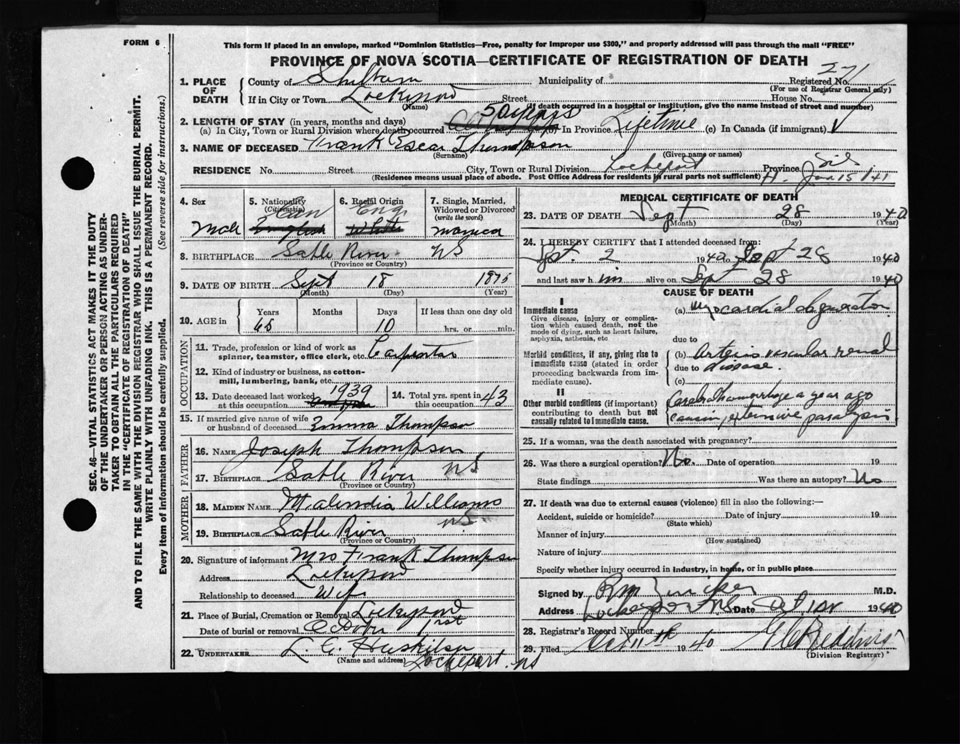 FORM 6
This form if placed in an envelope, marked "Dominion Statistics—Free, penalty for improper use $300," and properly addressed will pass through the mail "FREE"
PROVINCE OF NOVA SCOTIA—CERTIFICATE OF REGISTRATION OF DEATH
SEC. 46—VITAL STATISTICS ACT MAKES IT THE DUTY
OF THE UNDERTAKER OR PERSON ACTING AS UNDER-
TAKER TO OBTAIN ALL THE PARTICULARS REQUIRED
IN THE "CERTIFICATE OF REGISTRATION OF DEATH"
AND TO FILE THE SAME WITH THE DIVISION REGISTRAR WHO SHALL ISSUE THE BURIAL PERMIT.
WRITE PLAINLY WITH UNFADING INK. THIS IS A PERMANENT RECORD.
Every item of information should be carefully supplied. (See reverse side for instructions.)
1. PLACE OF DEATH
County of Municipality of Registered No. 271
(For use of Registrar General only)
If in City or Town Lockeport Street House No.
(Name) If death occurred in a hospital or institution, give the name instead of street and number)
2. LENGTH OF STAY (in years, months and days) 50 years
(a) In City, Town or Rural Division where death occurred In Province Lifetime (c) In Canada (if immigrant)
3. NAME OF DECEASED Frank Thompson
(Surname) (Given name or names)
RESIDENCE No. Street City, Town or Rural Division Lockeport Province
(Residence means usual place of abode. Post Office Address for residents in rural parts not sufficient) Jan 15/41
4. Sex Male
5. Nationality (Citizenship) Can English
6. Racial Origin Eng White
7. Single, Married, Widowed or Divorced (write the word) Married
8. BIRTHPLACE Sable River NS
(Province or Country)
9. DATE OF BIRTH Sept 18 1875
(Month) (Day) (Year)
10. AGE in Years 65 Months Days 10 If less than one day old hrs. or min.
OCCUPATION
11. Trade, profession or kind of work as spinner, teamster, office clerk, etc. Carpenter
12. Kind of industry or business, as cotton-mill, lumbering, bank, etc.
13. Date deceased last worked at this occupation 1939 14. Total yrs. spent in this occupation 43
15. If married give name of wife or husband of deceased Emma Thompson
FATHER
16. NAME Joseph Thompson
17. BIRTHPLACE Sable River NS
(Province or Country)
MOTHER
18. MAIDEN NAME Williams
19. BIRTHPLACE Sable River N.S.
(Province or Country)
20. Signature of informant Mrs Frank Thompson
Address Lockeport
Relationship to deceased Wife
21. Place of Burial, Cremation or Removal Lockeport
Date of burial or removal Octr 1st
22. UNDERTAKER
(Name and address) Lockeport NS
MEDICAL CERTIFICATE OF DEATH
23. DATE OF DEATH Sept 28 1940
(Month) (Day) (Year)
24. I HEREBY CERTIFY that I attended deceased from:
Sept 2 1940 to Sept 28 1940
and last saw him alive on Sept 28 1940
CAUSE OF DEATH
I
Immediate cause
Give disease, injury or complication which caused death, not the mode of dying, such as heart failure, asphyxia, asthenia, etc
(a) Myocardial degeneration
due to
Morbid conditions, if any, giving rise to immediate cause (stated in order proceeding backwards from immediate cause).
(b) Arterio vascular renal
due to disease.
(c)
II
Other morbid conditions (if important) contributing to death but not causally related to immediate cause.
a year ago
extensive paralysis
25. If a woman, was the death associated with pregnancy?
26. Was there a surgical operation? No. Date of operation 19
State findings Was there an autopsy? No
27. If death was due to external causes (violence) fill in also the following:—
Accident, suicide or homicide? Date of injury 19
(State which)
Manner of injury
(How sustained)
Nature of injury
Specify whether injury occurred in industry, in home, or in public place
Signed by M.D.
Address Lockeport NS Date 1940
28. Registrar's Record Number
29. Filed 11th 1940
(Division Registrar)